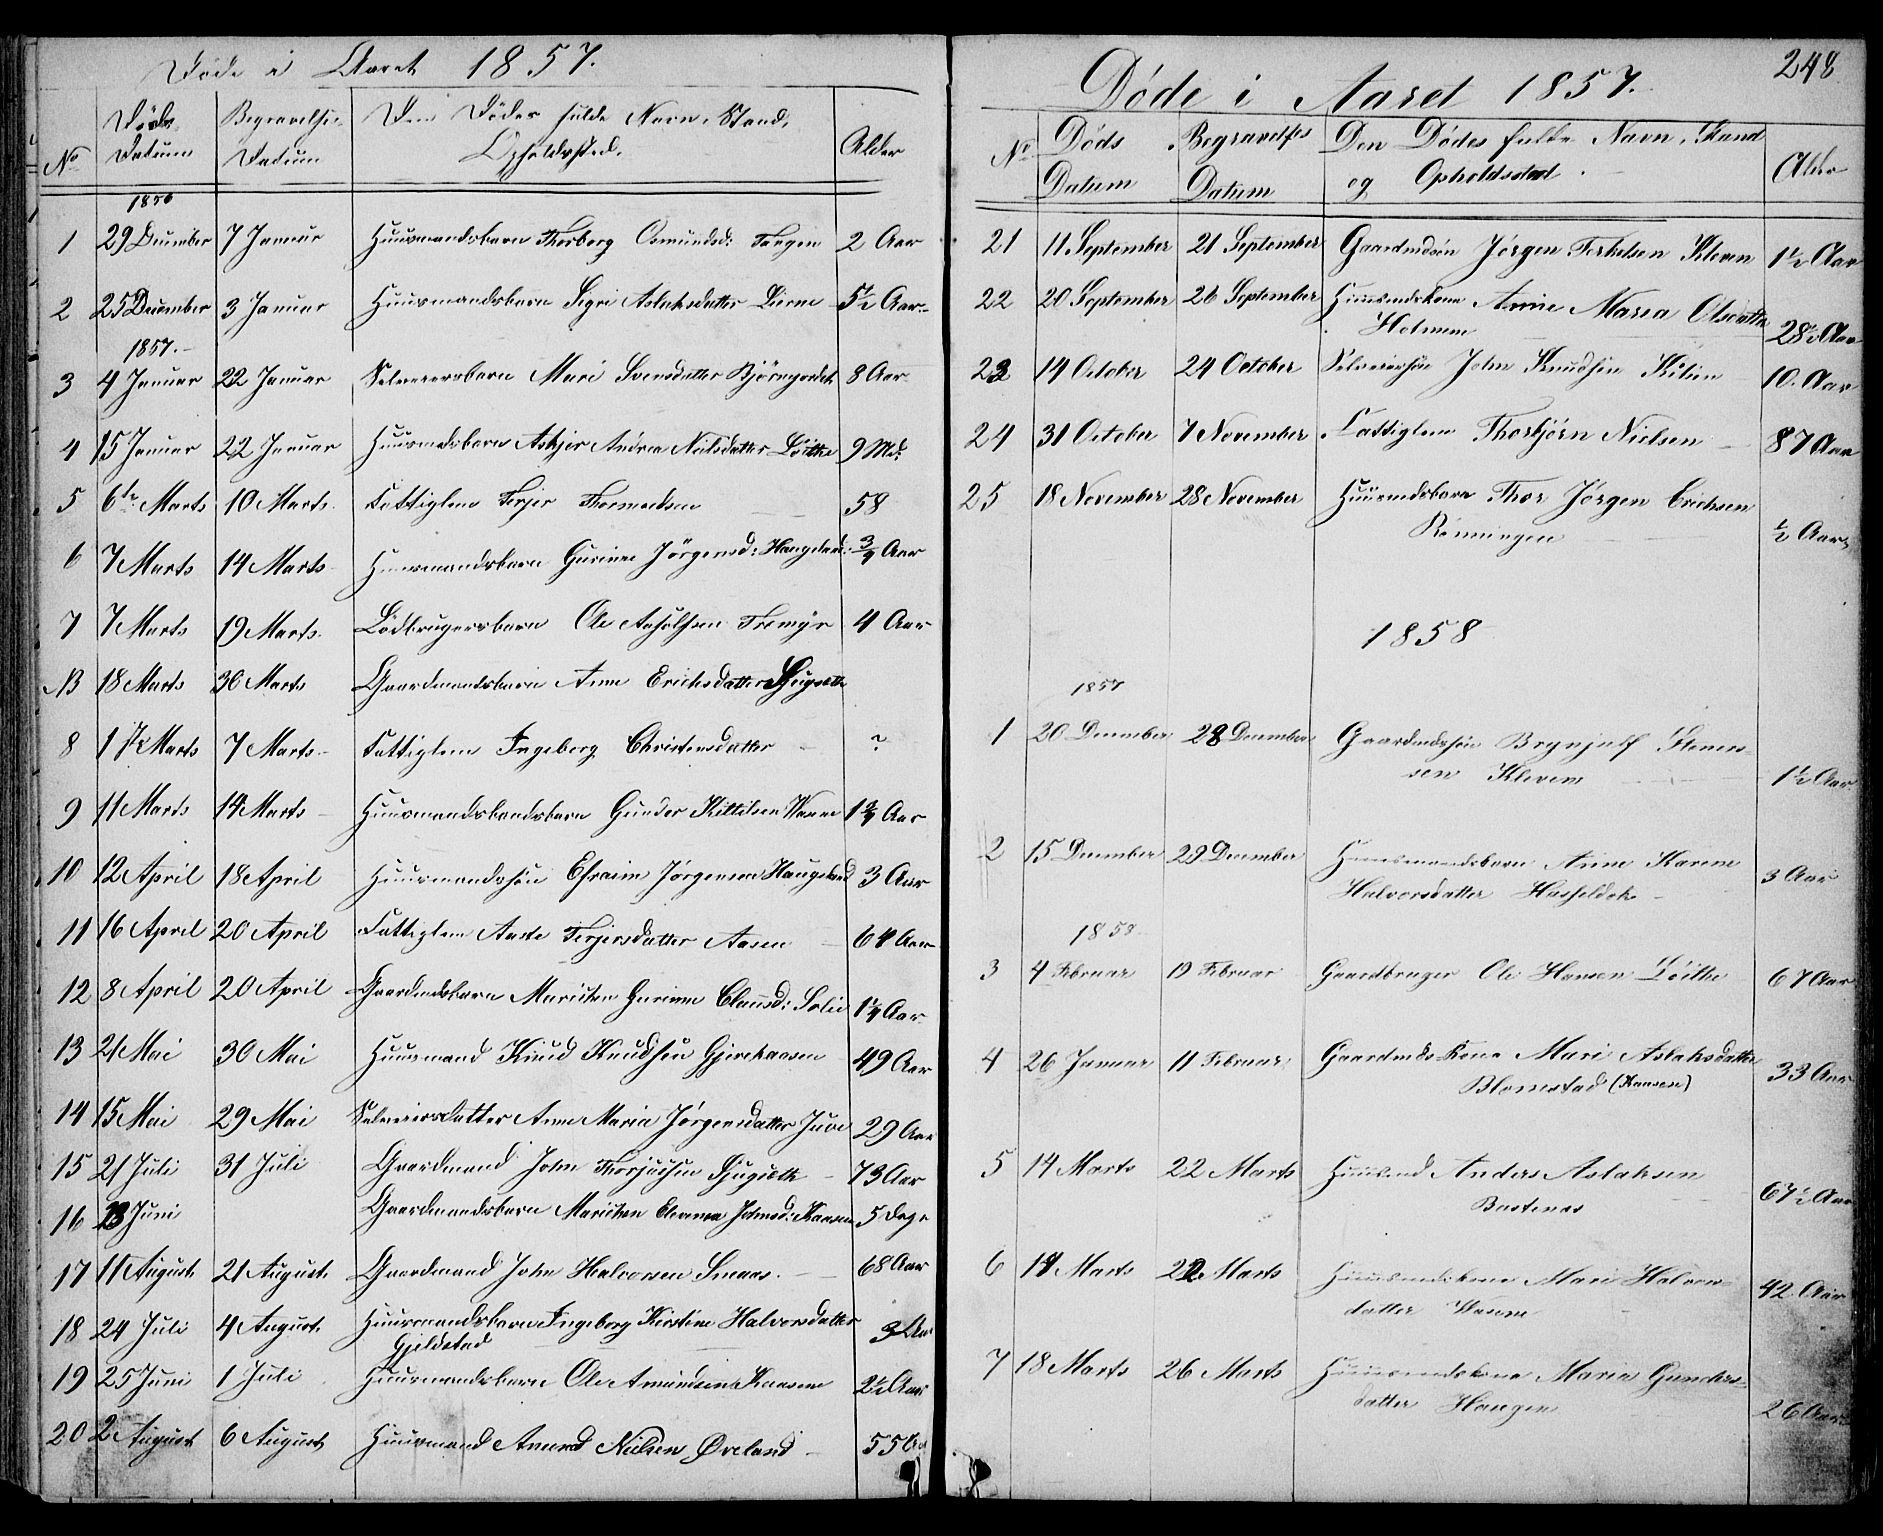 Døde i Aaret 1857.
No Døds Datum Begravelses Datum Den Dødes fulde Navn, Stand, Opholdssted. Alder
1856
1 29 December 7 Januar Huusmandsbarn Thorborg Osmundsd: Tangen 2 Aar
2 25 December 3 Januar Huusmandsbarn Sigri Aslaksdatter Lierne 5½ Aar
1857.
3 4 Januar 22 Januar Selveiersbarn Mari Svensdatter 8 Aar
4 15 Januar 22 Januar Huusmdsbarn Askjer Andrea Nielsdatter Löithe 9 Md:
5 6te Marts 10 Marts Fattiglem Terjer Thormodsen 58
6 7 Marts 14 Marts Huusmandsbarn Gurine Jörgensd: Haugeland 3/4 Aar
7 7 Marts 19 Marts Lödbrugersbarn Ole 4 Aar
NB 18 Marts 30 Marts Gaardmandsbarn Anne Erichsdatter
8 1 Marts 7 Marts Fattiglem Ingeborg Christensdatter ?
9 11 Marts 14 Marts Gunder Kittilsen 1¾ Aar
10 12 April 18 April Huusmandssön Efraim Jørgensen Haugeland 3 Aar
11 16 April 20 April Fattiglem Aaste Terjersdatter Aasen 64 Aar
12 8 April 20 April Gaardmdsbarn Marichen Gurine Clausd: Solie 1¼ Aar
13 21 Mai 30 Mai Huusmand Knud Knudsen 49 Aar
14 15 Mai 29 Mai Selveiersdatter Anne Maria Jørgensdatter Juve 29 Aar
15 21 Juli 31 Juli Gaardmand John 73 Aar
16 13 Juni Gaardmandsbarn Marichen Johnsd: Kaasen 5 Dage
17 11 August 21 August Gaardmand John Halvorsen 68 Aar
18 24 Juli 4 August Huusmandsbarn Ingeborg Kirstine Halvorsdatter 3 Aar
Gjeldstad
19 25 Juni 1 Juli Huusmandsbarn Ole Amundsen Kaasene 2½ Aar
20 2 August 6 August Huusmand Amund Nielsen Øveland 55 Aar
248
Døde i Aaret 1857.
No Døds Datum Begravelses Datum Den Dødes fulde Navn, Stand og Opholdssted Alder
21 11 September 21 September Gaardmdsön Jørgen Terkelsen Kleven 1½ Aar
22 20 September 26 September Huusmdskone Anne Maria Olsdatter
Holmen 28½ Aar
23 14 October 24 October Selveiersön John Knudsen Kilien 10 Aar
24 31 October 7 November Fattiglem Thorbjörn Nielsen 87 Aar
25 18 November 28 November Huusmdsbarn Thor Jørgen Erichsen
Rönningen ½ Aar
1858
1857
1 20 December 28 December Gaardmdssön Brynjulf Stener-
sen Kleven 1½ Aar
2 15 December 29 December Huusmandsbarn Anne Karine
Halvorsdatter Hasseldok 3 Aar
1858
3 4 Februar 19 Februar Gaardbruger Ole Hansen Löithe 67 Aar
4 26 Januar 11 Februar Gaardmds Kone Mari Aslaksdatter
Blomstad (Kaasen) 33 Aar
5 14 Marts 22 Marts Huusmd Anders Aslaksen
Bustenes 67½ Aar
6 14 Marts 22 Marts Huusmdskone Mari Halvors-
datter 42 Aar
7 18 Marts 26 Marts Huusmdskone Maria Gunders-
datter Haugen 26 Aar